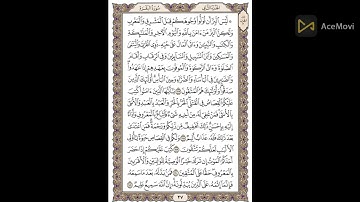 الجزء الثاني
سورة البقرة
AceMovi
لَّيْسَ ٱلْبِرَّ أَن تُوَلُّوا۟ وُجُوهَكُمْ قِبَلَ ٱلْمَشْرِقِ وَٱلْمَغْرِبِ
وَلَٰكِنَّ ٱلْبِرَّ مَنْ ءَامَنَ بِٱللَّهِ وَٱلْيَوْمِ ٱلْءَاخِرِ وَٱلْمَلَٰٓئِكَةِ
وَٱلْكِتَٰبِ وَٱلنَّبِيِّـۧنَ وَءَاتَى ٱلْمَالَ عَلَىٰ حُبِّهِۦ ذَوِى ٱلْقُرْبَىٰ
وَٱلْيَتَٰمَىٰ وَٱلْمَسَٰكِينَ وَٱبْنَ ٱلسَّبِيلِ وَٱلسَّآئِلِينَ وَفِى ٱلرِّقَابِ
وَأَقَامَ ٱلصَّلَوٰةَ وَءَاتَى ٱلزَّكَوٰةَ وَٱلْمُوفُونَ بِعَهْدِهِمْ إِذَا عَٰهَدُوا۟
وَٱلصَّٰبِرِينَ فِى ٱلْبَأْسَآءِ وَٱلضَّرَّآءِ وَحِينَ ٱلْبَأْسِ أُو۟لَٰٓئِكَ ٱلَّذِينَ
صَدَقُوا۟ وَأُو۟لَٰٓئِكَ هُمُ ٱلْمُتَّقُونَ يَٰٓأَيُّهَا ٱلَّذِينَ ءَامَنُوا۟ كُتِبَ
عَلَيْكُمُ ٱلْقِصَاصُ فِى ٱلْقَتْلَى ٱلْحُرُّ بِٱلْحُرِّ وَٱلْعَبْدُ بِٱلْعَبْدِ وَٱلْأُنثَىٰ
بِٱلْأُنثَىٰ فَمَنْ عُفِىَ لَهُۥ مِنْ أَخِيهِ شَىْءٌ فَٱتِّبَاعٌۢ بِٱلْمَعْرُوفِ وَأَدَآءٌ
إِلَيْهِ بِإِحْسَٰنٍ ذَٰلِكَ تَخْفِيفٌ مِّن رَّبِّكُمْ وَرَحْمَةٌ فَمَنِ ٱعْتَدَىٰ
بَعْدَ ذَٰلِكَ فَلَهُۥ عَذَابٌ أَلِيمٌ وَلَكُمْ فِى ٱلْقِصَاصِ حَيَوٰةٌ يَٰٓأُو۟لِى
ٱلْأَلْبَٰبِ لَعَلَّكُمْ تَتَّقُونَ كُتِبَ عَلَيْكُمْ إِذَا حَضَرَ
أَحَدَكُمُ ٱلْمَوْتُ إِن تَرَكَ خَيْرًا ٱلْوَصِيَّةُ لِلْوَٰلِدَيْنِ وَٱلْأَقْرَبِينَ
بِٱلْمَعْرُوفِ حَقًّا عَلَى ٱلْمُتَّقِينَ فَمَنۢ بَدَّلَهُۥ بَعْدَمَا سَمِعَهُۥ
فَإِنَّمَآ إِثْمُهُۥ عَلَى ٱلَّذِينَ يُبَدِّلُونَهُۥٓ إِنَّ ٱللَّهَ سَمِيعٌ عَلِيمٌ
٢٧